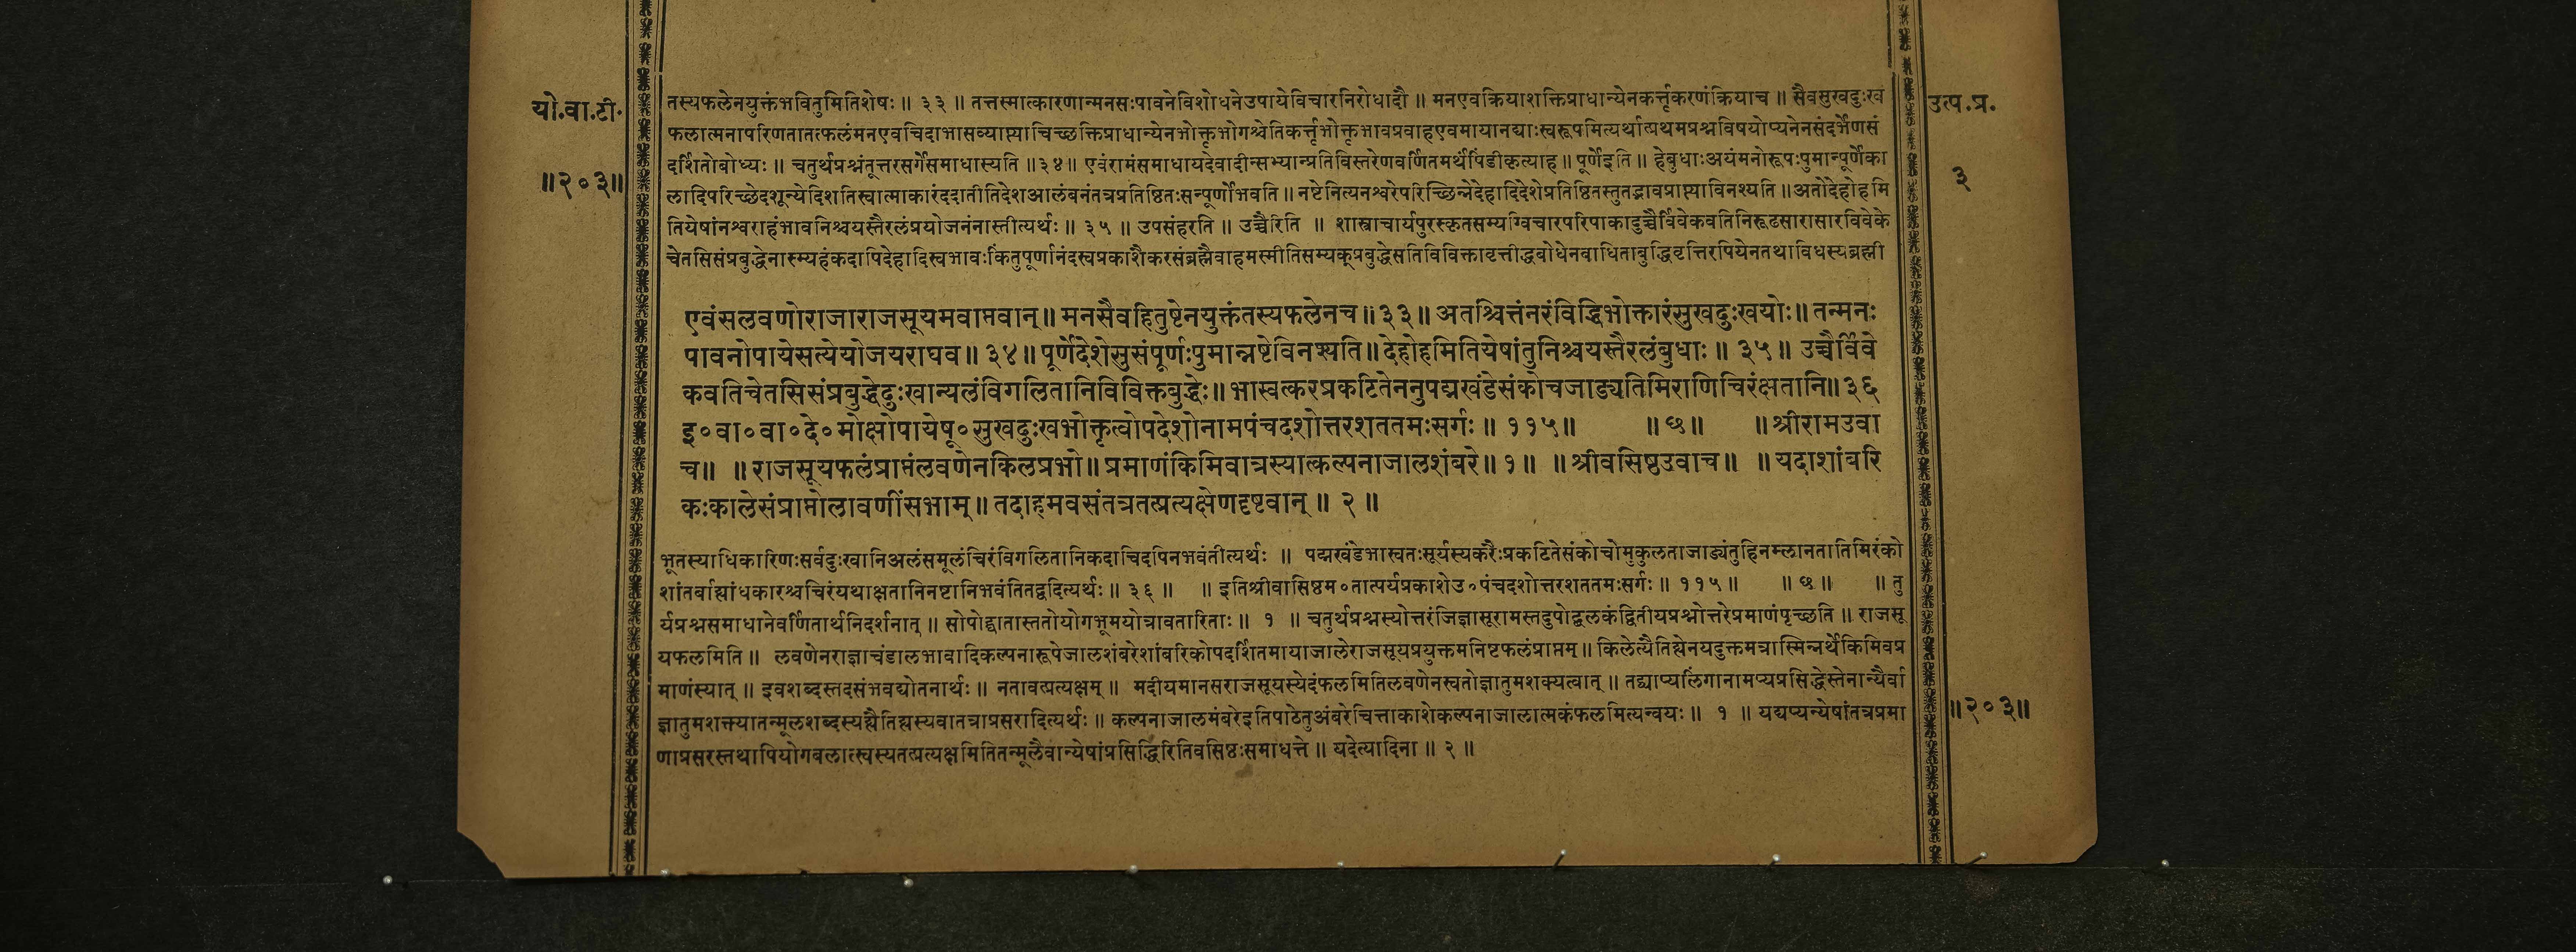 यो.वा.टी.
॥२०३॥
उत्प.प्र.
३
तस्यफलेनयुक्तंभवितुमितिशेषः ॥ ३३ ॥ तत्तस्मात्कारणान्मनसःपावनेविशोधनेउपायेविचारनिरोधादौ ॥ मनएवक्रियाशक्तिप्राधान्येनकर्तृकरणंक्रियाच ॥ सैवसुखदुःख
फलात्मनापरिणतातत्फलंमनएवचिदाभासव्याप्त्याचिच्छक्तिप्राधान्येनभोक्तृभोगश्चेतिकर्तृभोक्तृभावप्रवाहएवमायानद्याःस्वरूपमित्यर्थात्प्रथमप्रश्नविषयोप्यनेनसंदर्भेणसं
दर्शितोबोध्यः ॥ चतुर्थप्रश्नंतूत्तरसर्गेसमाधास्यति ॥३४॥ एवंरामंसमाधायदेवादीन्सभ्यान्प्रतिविस्तरेणवर्णितमर्थंपिंडीकृत्याह ॥ पूर्णेइति ॥ हेबुधाःअयंमनोरूपःपुमान्पूर्णेका
लादिपरिच्छेदशून्येदिशतिस्वात्माकारंददातीतिदेशआलंबनंतत्रप्रतिष्ठितःसन्पूर्णोभवति ॥ नष्टेनित्यनश्वरेपरिच्छिन्नेदेहादिदेशेप्रतिष्ठितस्तुतद्भावप्राप्त्याविनश्यति ॥अतोदेहोहमि
तियेषांनश्वराहंभावनिश्चयस्तैरलंप्रयोजनंनास्तीत्यर्थः ॥ ३५ ॥ उपसंहरति ॥ उच्चैरिति ॥ शास्त्राचार्यपुरस्कृतसम्यग्विचारपरिपाकादुच्चैर्विवेकवतिनिरूढसारासारविवेके
चेतसिसंप्रबुद्धेनास्म्यहंकदापिदेहादिस्वभावःकिंतुपूर्णानंदस्वप्रकाशैकरसंब्रह्मैवाहमस्मीतिसम्यक्प्रबुद्धेसतिविविक्तावृत्तीद्धबोधेनबाधिताबुद्धिवृत्तिरपियेनतथाविधस्यब्रह्मी
एवंसलवणोराजाराजसूयमवाप्तवान् ॥ मनसैवहितुष्टेनयुक्तंतस्यफलेनच ॥३३॥ अतश्चित्तंनरंविद्धिभोक्तारंसुखदुःखयोः ॥ तन्मनः
पावनोपायेसत्येयोजयराघव ॥ ३४॥ पूर्णेदेशेसुसंपूर्णःपुमान्नष्टेविनश्यति ॥ देहोहमितियेषांतुनिश्चयस्तैरलंबुधाः ॥ ३५॥ उच्चैर्विवे
कवतिचेतसिसंप्रबुद्धेदुःखान्यलंविगलितानिविविक्तबुद्धेः ॥ भास्वत्करप्रकटितेननुपद्मखंडेसंकोचजाड्यतिमिराणिचिरंक्षतानि॥३६
इ०वा०वा०दे०मोक्षोपायेषू०सुखदुःखभोक्तृत्वोपदेशोनामपंचदशोत्तरशततमःसर्गः ॥ ११५॥ ॥ छ ॥ ॥ श्रीरामउवा
च॥ ॥ राजसूयफलंप्राप्तंलवणेनकिलप्रभो ॥ प्रमाणंकिमिवात्रस्यात्कल्पनाजालशंबरे ॥ १ ॥ ॥ श्रीवसिष्ठउवाच ॥ ॥ यदाशांबरि
कःकालेसंप्राप्तोलावणींसभाम् ॥ तदाहमवसंतत्रतत्प्रत्यक्षेणदृष्टवान् ॥ २ ॥
भूतस्याधिकारिणःसर्वदुःखानिअलंसमूलंचिरंविगलितानिकदाचिदपिनभवंतीत्यर्थः ॥ पद्मखंडेभास्वतःसूर्यस्यकरैःप्रकटितेसंकोचोमुकुलताजाड्यंतुहिनम्लानतातिमिरंको
शांतर्बाह्यांधकारश्चचिरंयथाक्षतानिनष्टानिभवंतितद्वदित्यर्थः ॥ ३६ ॥ ॥ इतिश्रीवासिष्ठम०तात्पर्यप्रकाशेउ०पंचदशोत्तरशततमःसर्गः ॥ ११५ ॥ ॥ छ ॥ ॥ तु
र्यप्रश्नसमाधानेवर्णितार्थनिदर्शनात् ॥ सोपोद्धातास्ततोयोगभूमयोत्रावतारिताः ॥ १ ॥ चतुर्थप्रश्नस्योत्तरंजिज्ञासूरामस्तदुपोद्बलकंद्वितीयप्रश्नोत्तरेप्रमाणंपृच्छति ॥ राजसू
यफलमिति ॥ लवणेनराज्ञाचंडालभावादिकल्पनारूपेजालशंबरेशांबरिकोपदर्शितमायाजालेराजसूयप्रयुक्तमनिष्टफलंप्राप्तम् ॥ किलेत्यैतिह्येनयदुक्तमत्रास्मिन्नर्थेकिमिवप्र
माणंस्यात् ॥ इवशब्दस्तदसंभवद्योतनार्थः ॥ नतावत्प्रत्यक्षम् ॥ मदीयमानसराजसूयस्येदंफलमितिलवणेनस्वतोज्ञातुमशक्यत्वात् ॥ तद्व्याप्यलिंगानामप्यप्रसिद्धेस्तेनान्यैर्वा
ज्ञातुमशक्त्यातन्मूलशब्दस्यह्यैतिह्यस्यवातत्राप्रसरादित्यर्थः ॥ कल्पनाजालमंबरेइतिपाठेतुअंबरेचित्ताकाशेकल्पनाजालात्मकंफलमित्यन्वयः ॥ १ ॥ यद्यप्यन्येषांतत्रप्रमा
णाप्रसरस्तथापियोगबलात्स्वस्यतत्प्रत्यक्षमितितन्मूलैवान्येषांप्रसिद्धिरितिवसिष्ठःसमाधत्ते ॥ यदेत्यादिना ॥ २ ॥
॥२०३॥